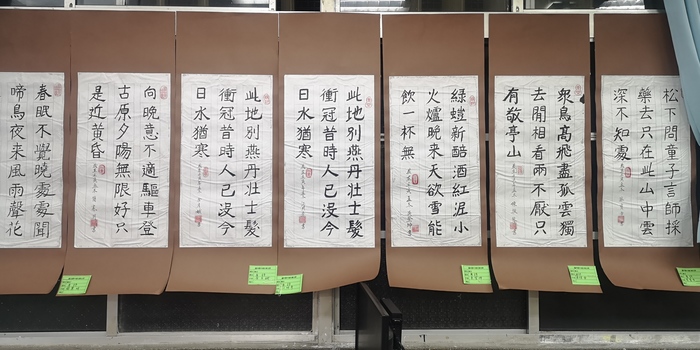 松下問童子言師採
藥去只在此山中雲
深不知處
衆鳥高飛盡孤雲獨
去閒相看兩不厭只
有敬亭山
綠螘新醅酒紅泥小
火爐晚來天欲雪能
飲一杯無
此地別燕丹壯士髮
衝冠昔時人已没今
日水猶寒
此地別燕丹壯士髮
衝冠昔時人已没今
日水猶寒
向晚意不適驅車登
古原夕陽無限好只
是近黃昏
春眠不覺曉處處聞
啼鳥夜來風雨聲花